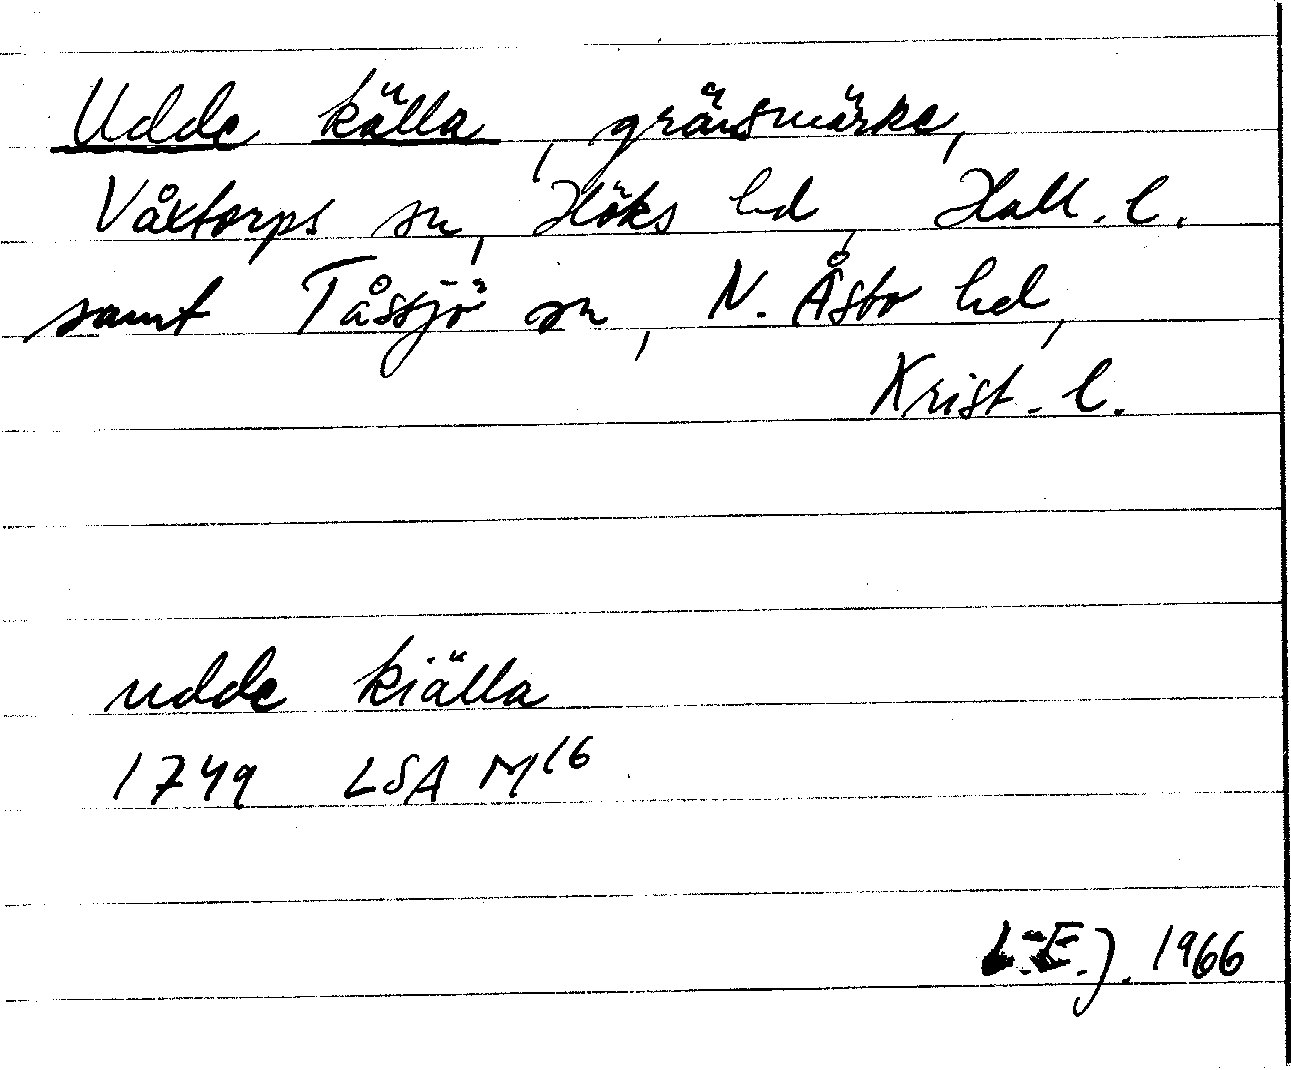 Udde källa, gränsmärke,
Våxtorps sn, Höks hd, Hall. l.
samt Tåssjö sn, N. Åsbo hd,
Krist. l.
udde kiälla
1749 LSA M16
L-E.J. 1966